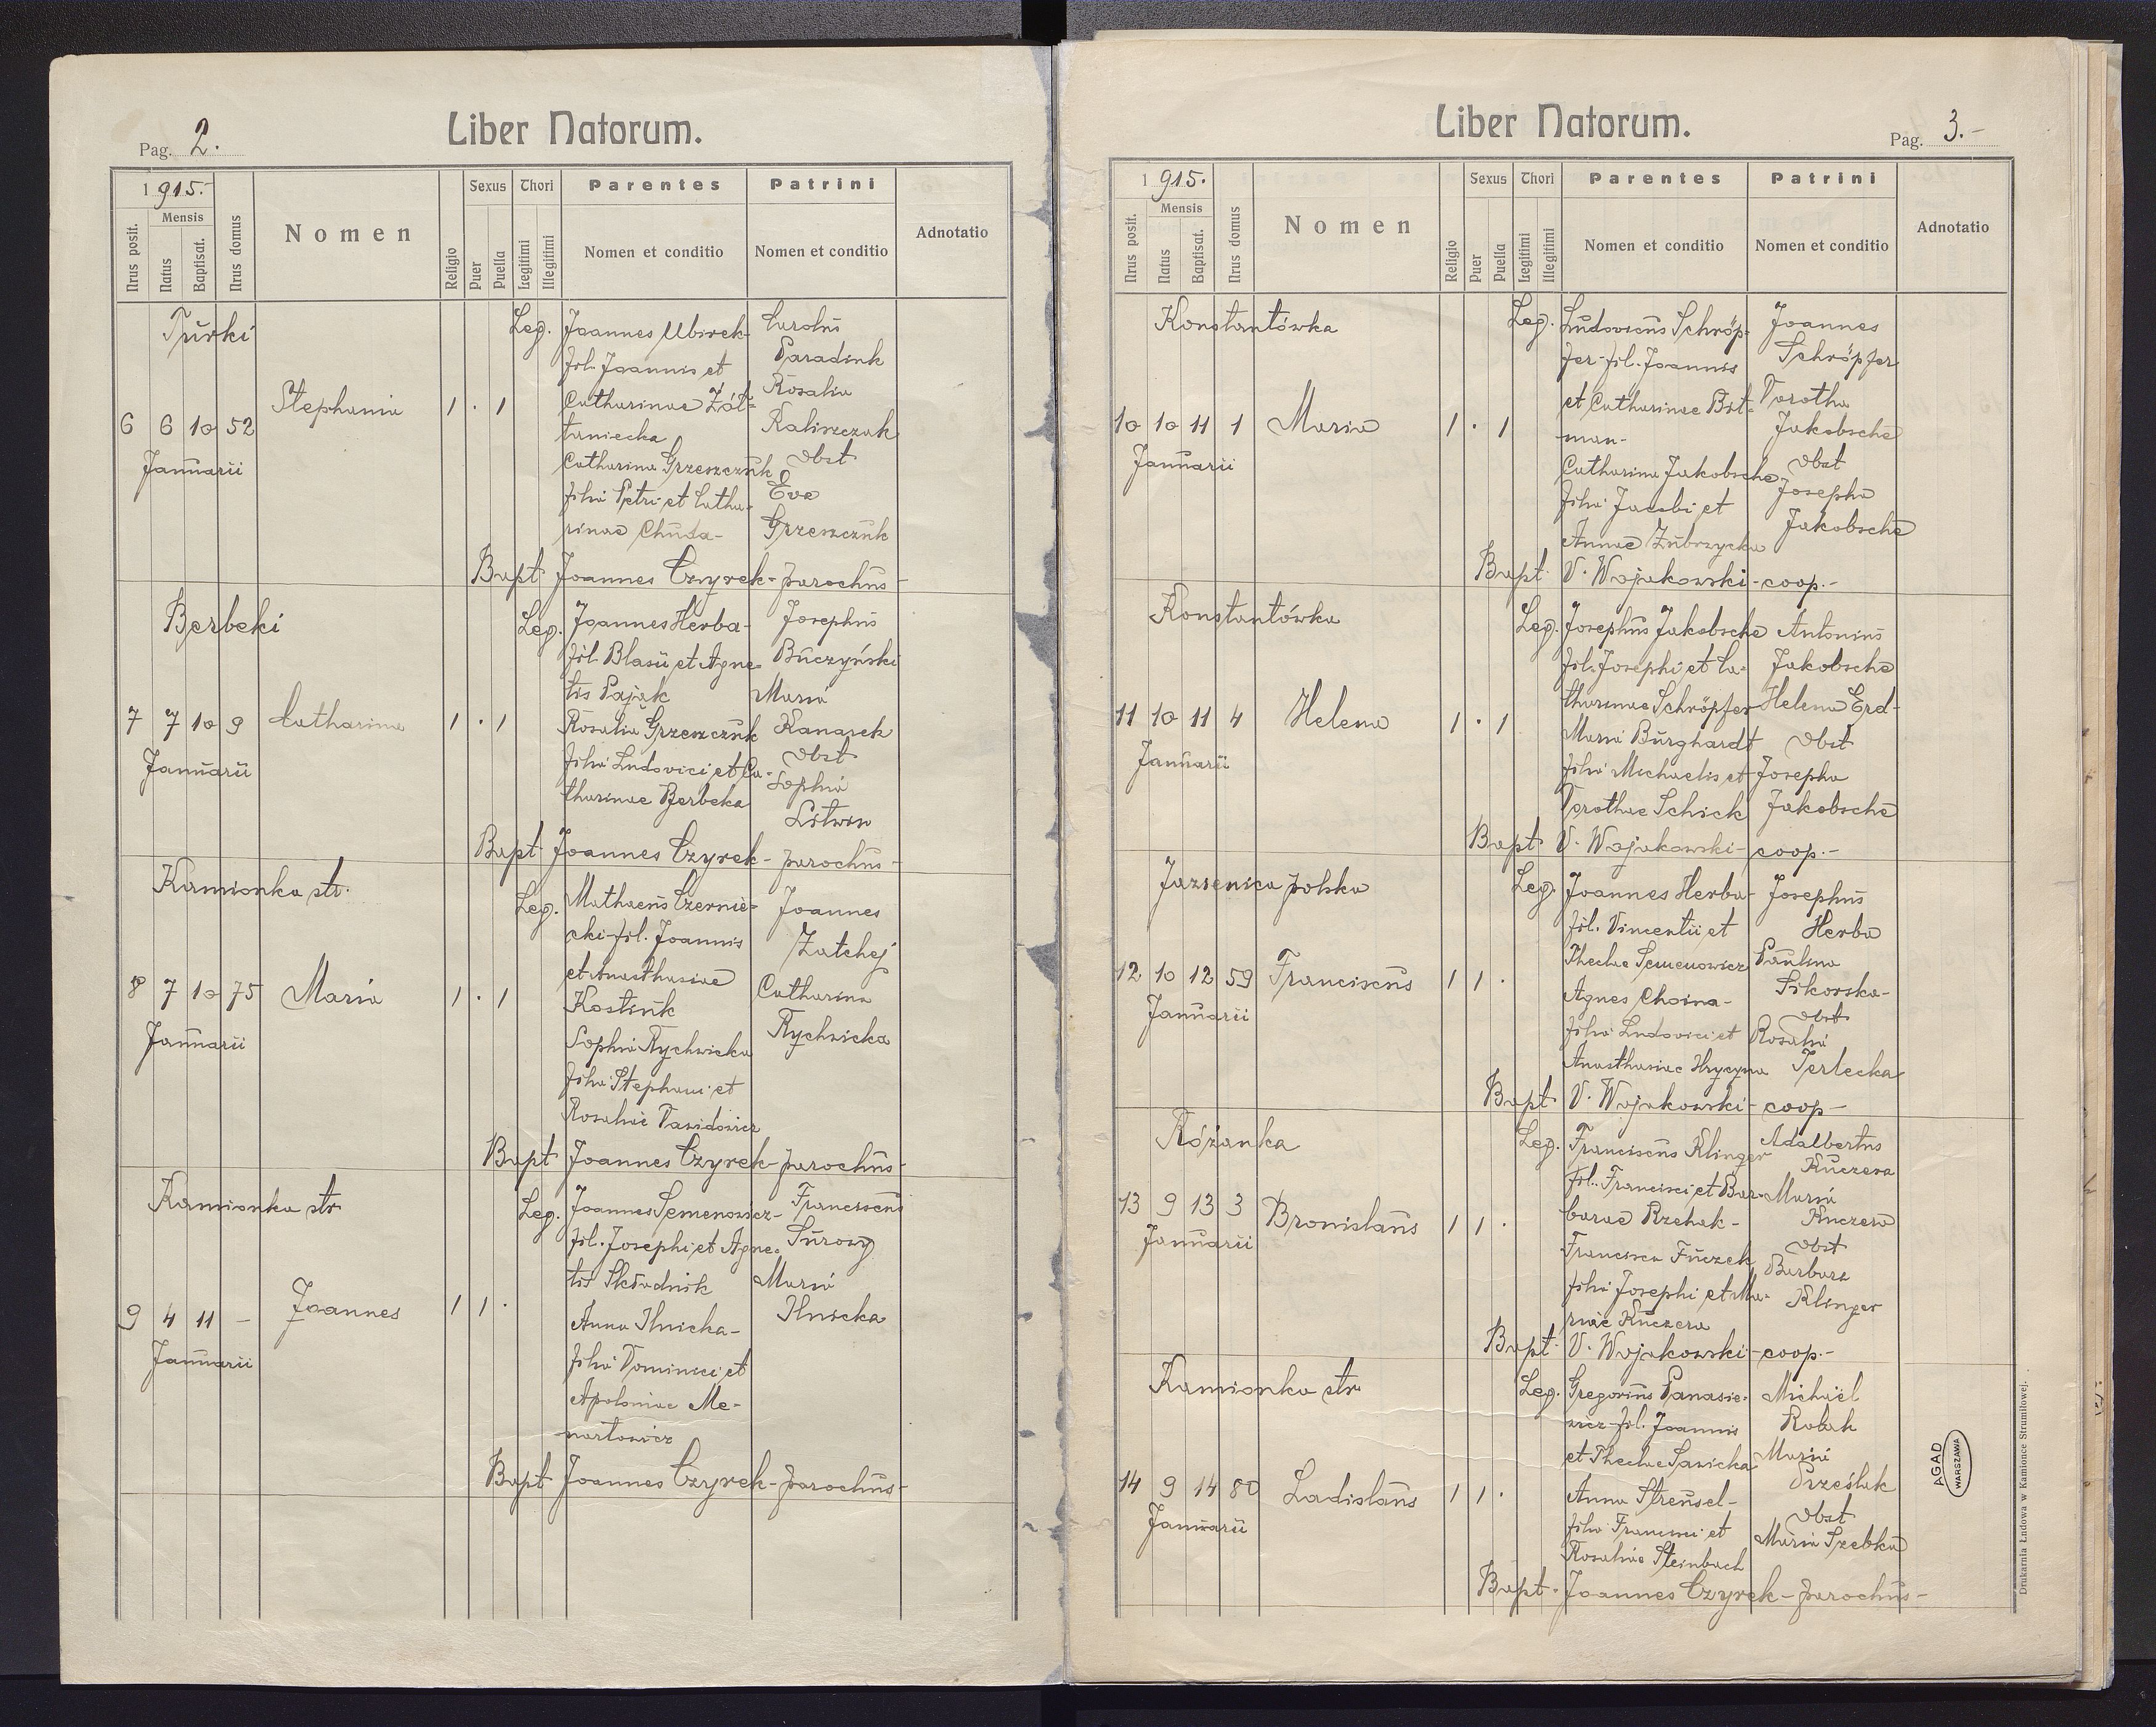 Liber Natorum.
Pag. 2.
1915.
Nrus posit.
Mensis
Natus
Baptisat.
Nrus domus
Nomen
Religio
Sexus
Puer
Puella
Thori
Legitimi
Illegitimi
Parentes
Nomen et conditio
Patrini
Nomen et conditio
Adnotatio
Turki
6 6 10 52
Januarii
Stephania
1 . 1
Leg.
Joannes Ubirek-
fil. Joannis et
Catharinae Żół-
taniecka
Catharina Grzeszczuk
filia Petri et Catha-
rinae Chuda-
Carolus
Paradiuk
Rosalia
Kaliszczak
Obst
Eva
Grzeszczuk
Bapt Joannes Czyrek- parochus-
Berbeki
7 7 10 9
Januarii
Catharina
1 . 1
Leg.
Joannes Herba-
fil. Blasii et Agne-
tis Pająk
Rosalia Grzeszczuk
filia Ludovici et Ca-
tharinae Berbeka
Josephus
Buczyński
Maria
Kanasek
Obst
Sophia
Litwin
Bapt Joannes Czyrek- parochus-
Kamionka str.
8 7 10 75
Januarii
Maria
1 . 1
Leg.
Mathaeus Czernie-
cki- fil. Joannis
et Anasthasiae
Kostiuk
Sophia Rychwicka
filia Stephani et
Rosaliae Dawidowicz
Joannes
Zatchej
Catharina
Rychwicka
Bapt Joannes Czyrek- parochus-
Kamionka str
9 4 11 -
Januarii
Joannes
1 1 .
Leg.
Joannes Semenowicz-
fil. Josephi et Agne-
tis Składnik
Anna Ilnicka-
filia Dominici et
Apoloniae Me-
nartowicz
Franciscus
Surowy
Maria
Ilnicka
Bapt Joannes Czyrek- parochus-
Liber Natorum.
Pag. 3.-
1915.
Nrus posit.
Mensis
Natus
Baptisat.
Nrus domus
Nomen
Religio
Sexus
Puer
Puella
Thori
Legitimi
Illegitimi
Parentes
Nomen et conditio
Patrini
Nomen et conditio
Adnotatio
Konstantówka
10 10 11 1
Januarii
Maria
1 . 1
Leg.
Ludovicus Schröp-
fer- fil. Joannis
et Catharinae Bit-
man-
Catharina Jakobsche
filia Jacobi et
Annae Zubrzycka
Joannes
Schröpfer
Dorothea
Jakobsche
Obst
Josepha
Jakobsche
Bapt V. Wojakowski- coop.-
Konstantówka
11 10 11 4
Januarii
Helena
1 . 1
Leg.
Josephus Jakobsche
fil. Josephi et Ca-
tharinae Schröpfer
Maria Burghardt
filia Michaelis et
Dorothae Schick
Antonius
Jakobsche
Helena Erd-
Obst
Josepha
Jakobsche
Bapt V. Wojakowski- coop.-
Jazienica polska
12 10 12 59
Januarii
Franciscus
1 1 .
Leg.
Joannes Herba-
fil. Vincentii et
Theclae Semenowicz
Agnes Choina-
filia Ludovici et
Anasthasiae Hrycyna
Josephus
Herba
Paulina
Sikorska-
Obst
Rosalia
Terlecka
Bapt V. Wojakowski- coop-
Różanka
13 9 13 3
Januarii
Bronislaus
1 1 .
Leg.
Franciscus Klinger
fil. Francisci et Bar-
barae Rzehak-
Francisca Fuczek
filia Josephi et Ma-
riae Kuczera
Adalbertus
Kuczera
Maria
Kuczera
Obst
Barbara
Klinger
Bapt. V. Wojakowski- coop.-
Kamionka str.
14 9 14 80
Januarii
Ladislaus
1 1 .
Leg.
Gregorius Panasie-
wicz- fil. Joannis
et Theclae Sawicka
Anna Streusel-
filia Francisci et
Rosaliae Steinbach
Michaël
Robak
Maria
Prześlak
Obst
Maria Szebka
Bapt. Joannes Czyrek- parochus-
AGAD
WARSZAWA
Drukarnia Ludowa w Kamionce Strumiłowej.